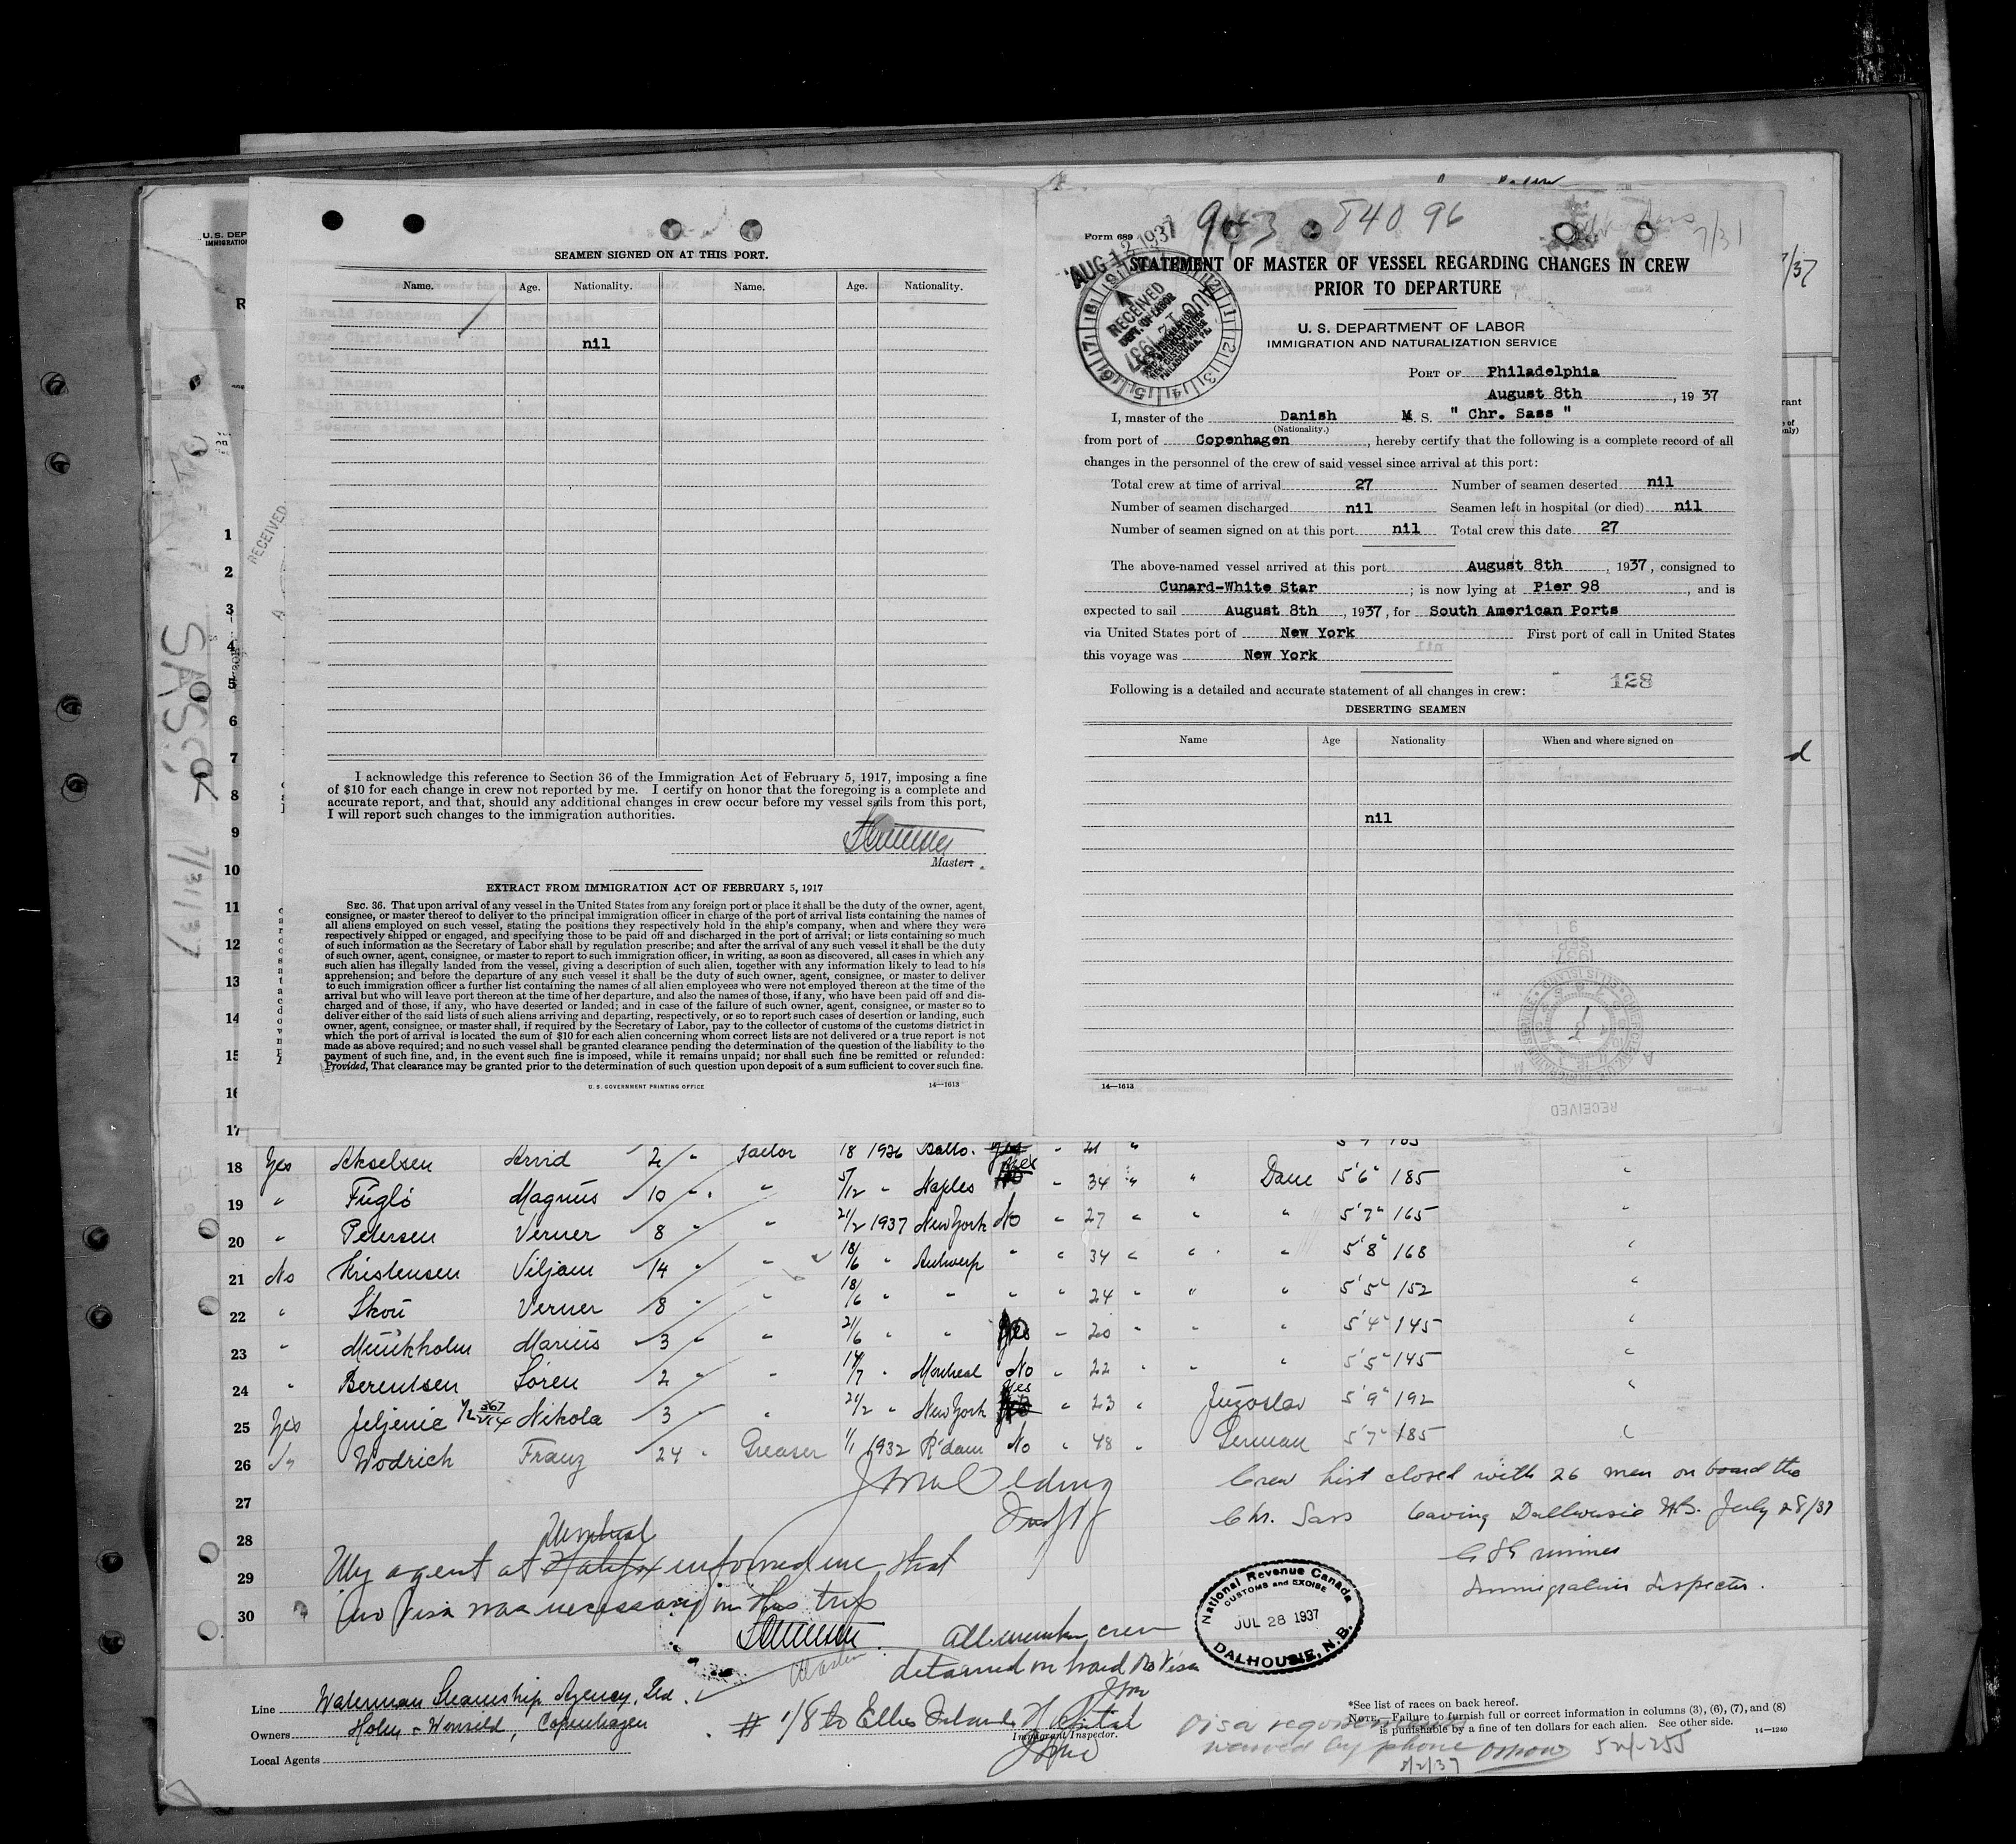 SEAMEN SIGNED ON AT THIS PORT.
Name. Age. Nationality. Name. Age. Nationality.
nil
I acknowledge this reference to Section 36 of the Immigration Act of February 5, 1917, imposing a fine
of $10 for each change in crew not reported by me. I certify on honor that the foregoing is a complete and
accurate report, and that, should any additional changes in crew occur before my vessel sails from this port,
I will report such changes to the immigration authorities.
Master.
EXTRACT FROM IMMIGRATION ACT OF FEBRUARY 5, 1917
SEC. 36. That upon arrival of any vessel in the United States from any foreign port or place it shall be the duty of the owner, agent,
consignee, or master thereof to deliver to the principal immigration officer in charge of the port of arrival lists containing the names of
all aliens employed on such vessel, stating the positions they respectively hold in the ship's company, when and where they were
respectively shipped or engaged, and specifying those to be paid off and discharged in the port of arrival; or lists containing so much
of such information as the Secretary of Labor shall by regulation prescribe; and after the arrival of any such vessel it shall be the duty
of such owner, agent, consignee, or master to report to such immigration officer, in writing, as soon as discovered, all cases in which any
such alien has illegally landed from the vessel, giving a description of such alien, together with any information likely to lead to his
apprehension; and before the departure of any such vessel it shall be the duty of such owner, agent, consignee, or master to deliver
to such immigration officer a further list containing the names of all alien employees who were not employed thereon at the time of the
arrival but who will leave port thereon at the time of her departure, and also the names of those, if any, who have been paid off and dis-
charged and of those, if any, who have deserted or landed; and in case of the failure of such owner, agent, consignee, or master so to
deliver either of the said lists of such aliens arriving and departing, respectively, or so to report such cases of desertion or landing, such
owner, agent, consignee, or master shall, if required by the Secretary of Labor, pay to the collector of customs of the customs district in
which the port of arrival is located the sum of $10 for each alien concerning whom correct lists are not delivered or a true report is not
made as above required; and no such vessel shall be granted clearance pending the determination of the question of the liability to the
payment of such fine, and, in the event such fine is imposed, while it remains unpaid; nor shall such fine be remitted or refunded:
Provided, That clearance may be granted prior to the determination of such question upon deposit of a sum sufficient to cover such fine.
U. S. GOVERNMENT PRINTING OFFICE 14—1613
Form 689
AUG 12 1937
7/31
STATEMENT OF MASTER OF VESSEL REGARDING CHANGES IN CREW
PRIOR TO DEPARTURE
U. S. DEPARTMENT OF LABOR
IMMIGRATION AND NATURALIZATION SERVICE
RECEIVED
DEPT. OF LABOR
PHILADELPHIA, PA.
PORT OF Philadelphia
August 8th, 1937
I, master of the Danish M. S. " Chr. Sass "
(Nationality.)
from port of Copenhagen, hereby certify that the following is a complete record of all
changes in the personnel of the crew of said vessel since arrival at this port:
Total crew at time of arrival 27 Number of seamen deserted nil
Number of seamen discharged nil Seamen left in hospital (or died) nil
Number of seamen signed on at this port nil Total crew this date 27
The above-named vessel arrived at this port August 8th, 1937, consigned to
Cunard-White Star; is now lying at Pier 98, and is
expected to sail August 8th, 1937, for South American Ports
via United States port of New York First port of call in United States
this voyage was New York
128
Following is a detailed and accurate statement of all changes in crew:
DESERTING SEAMEN
Name Age Nationality When and where signed on
nil
14—1613
RECEIVED
1
2
3
4
5
6
7
8
9
10
11
12
13
14
15
16
17
18 Yes Akselsen Arvid 2 " Sailor 18 1936 Balto. Yes " 21 "
19 " Fuglö Magnus 10 " " 5/12 " Naples " 34 " " Dane 5'6" 185 "
20 " Petersen Verner 8 " " 21/2 1937 New York No " 27 " " " 5'7" 165 "
21 No Kristensen Viljam 14 " " 18/6 " Antwerp " " 34 " " " 5'8" 168 "
22 " Skou Verner 8 " " 18/6 " " " " 24 " " " 5'5" 152 "
23 " Munkholm Marius 3 " " 21/6 " " Yes " 20 " " " 5'4" 145 "
24 " Berentsen Sören 2 " " 14/7 " Montreal No " 22 " " " 5'5" 145 "
25 Yes Jeljenic Nikola 3 " " 21/2 " New York Yes " 23 " Jugoslav 5'9" 192 "
26 Wodrich Franz 24 " Greaser 1/1 1932 R'dam No " 48 " German 5'7" 185 "
27
28
29
30
Crew list closed with 26 men on board the
Chr. Sass leaving Dalhousie N.B. July 28/37
Immigration Inspector.
Montreal
My agent at Halifax informed me that
no visa was necessary on this trip
Master
All member crew
detained on board no visa
National Revenue Canada
CUSTOMS and EXCISE
JUL 28 1937
DALHOUSIE, N.B.
Line Waterman Steamship Agency, Ltd.
Owners Holm & Wonsild, Copenhagen
Local Agents
# 1/8 to Ellis Island Hospital
Immigrant Inspector.
Visa requirement
waived by phone
*See list of races on back hereof.
NOTE.—Failure to furnish full or correct information in columns (3), (6), (7), and (8)
is punishable by a fine of ten dollars for each alien. See other side. 14—1240